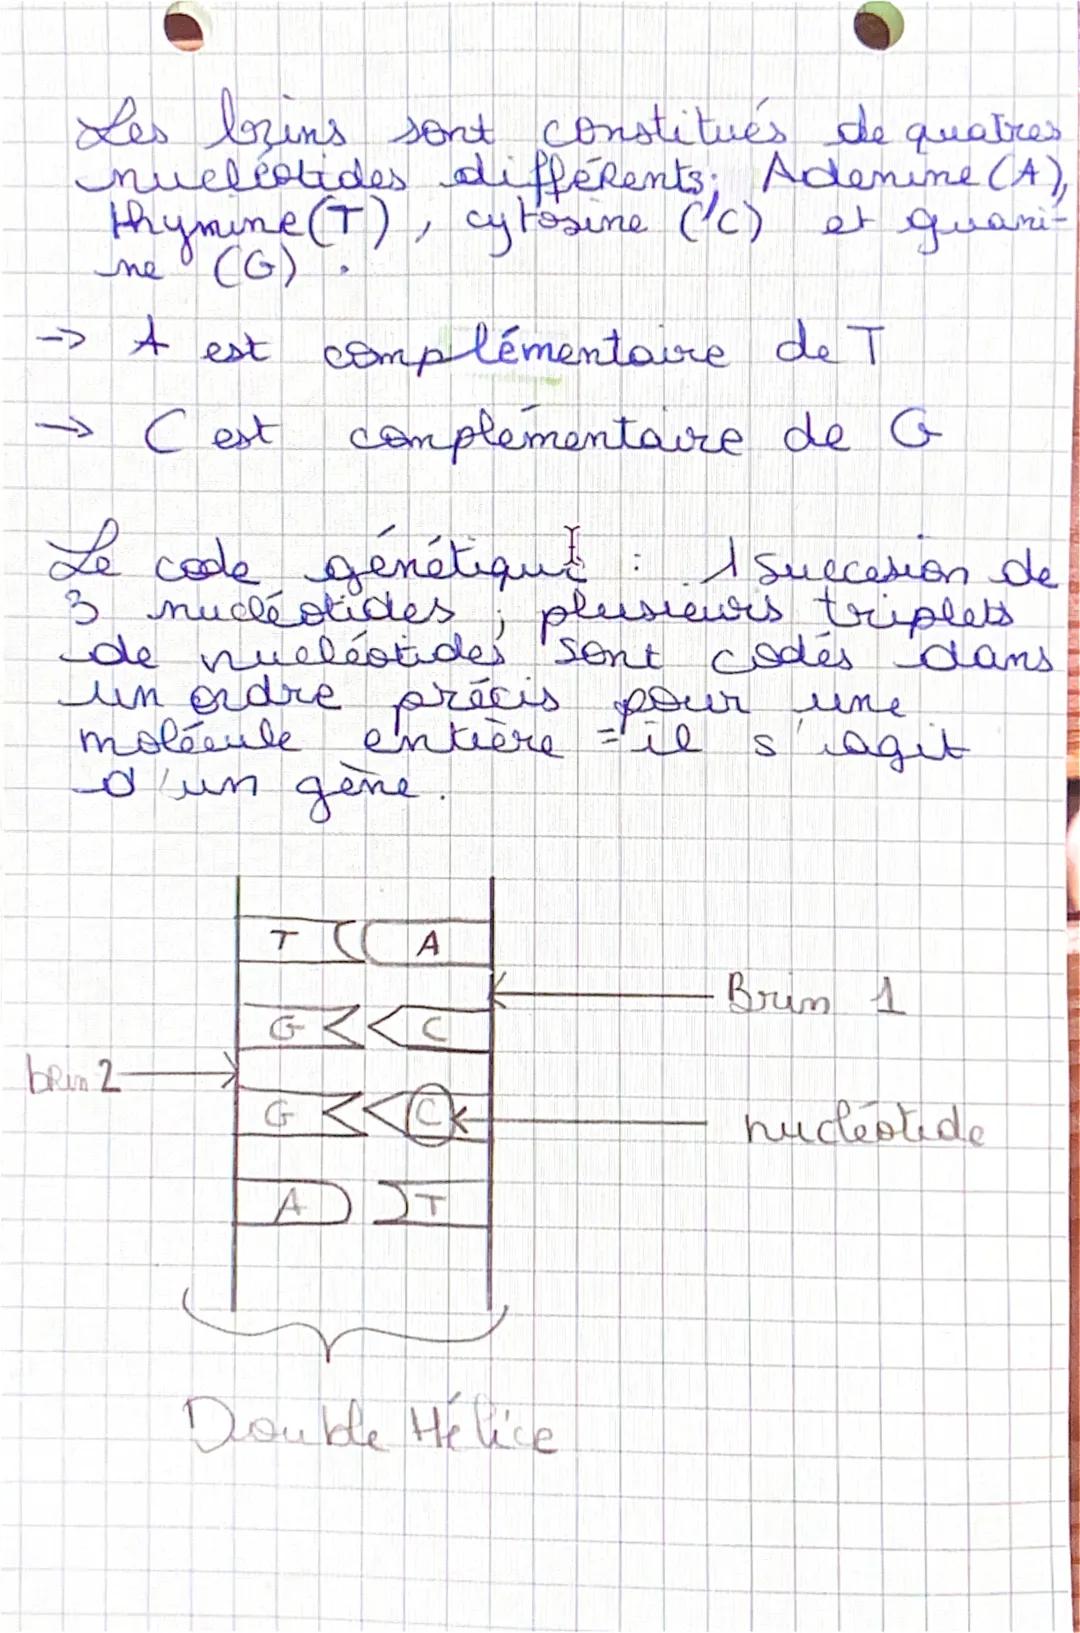 Les brins sont constitués de quatres
nucléotides différents; Adenine (A),
thymine (T), cytosine (C) et guani-
ne (G).
-> A est complémentaire de T
-> C est complémentaire de G
Le code génétique : 1 succesion de
3 nucléotides ; plusieurs triplets
de nucléotides sont codés dans
un ordre précis pour une
molécule entière = il s'agit
d'un gène.
T A
Brin 1
G C
brin 2
G C
nucléotide
A T
Double Hélice